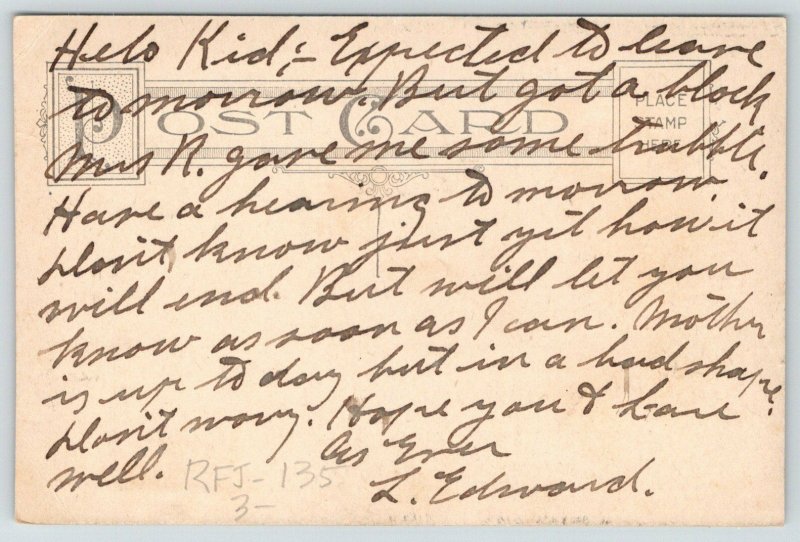 Helo Kid;- Expected to leave
tomorrow. But got a block
POST CARD
PLACE
STAMP
HERE
Mrs R. gave me some trubble.
Have a hearing to morrow.
Don't know just yet how it
will end. But will let you
know as soon as I can. Mother
is up to day but in a bad shape.
Don't worry. Hope you &
well. As Ever
RFJ-135
3-
L. Edward.